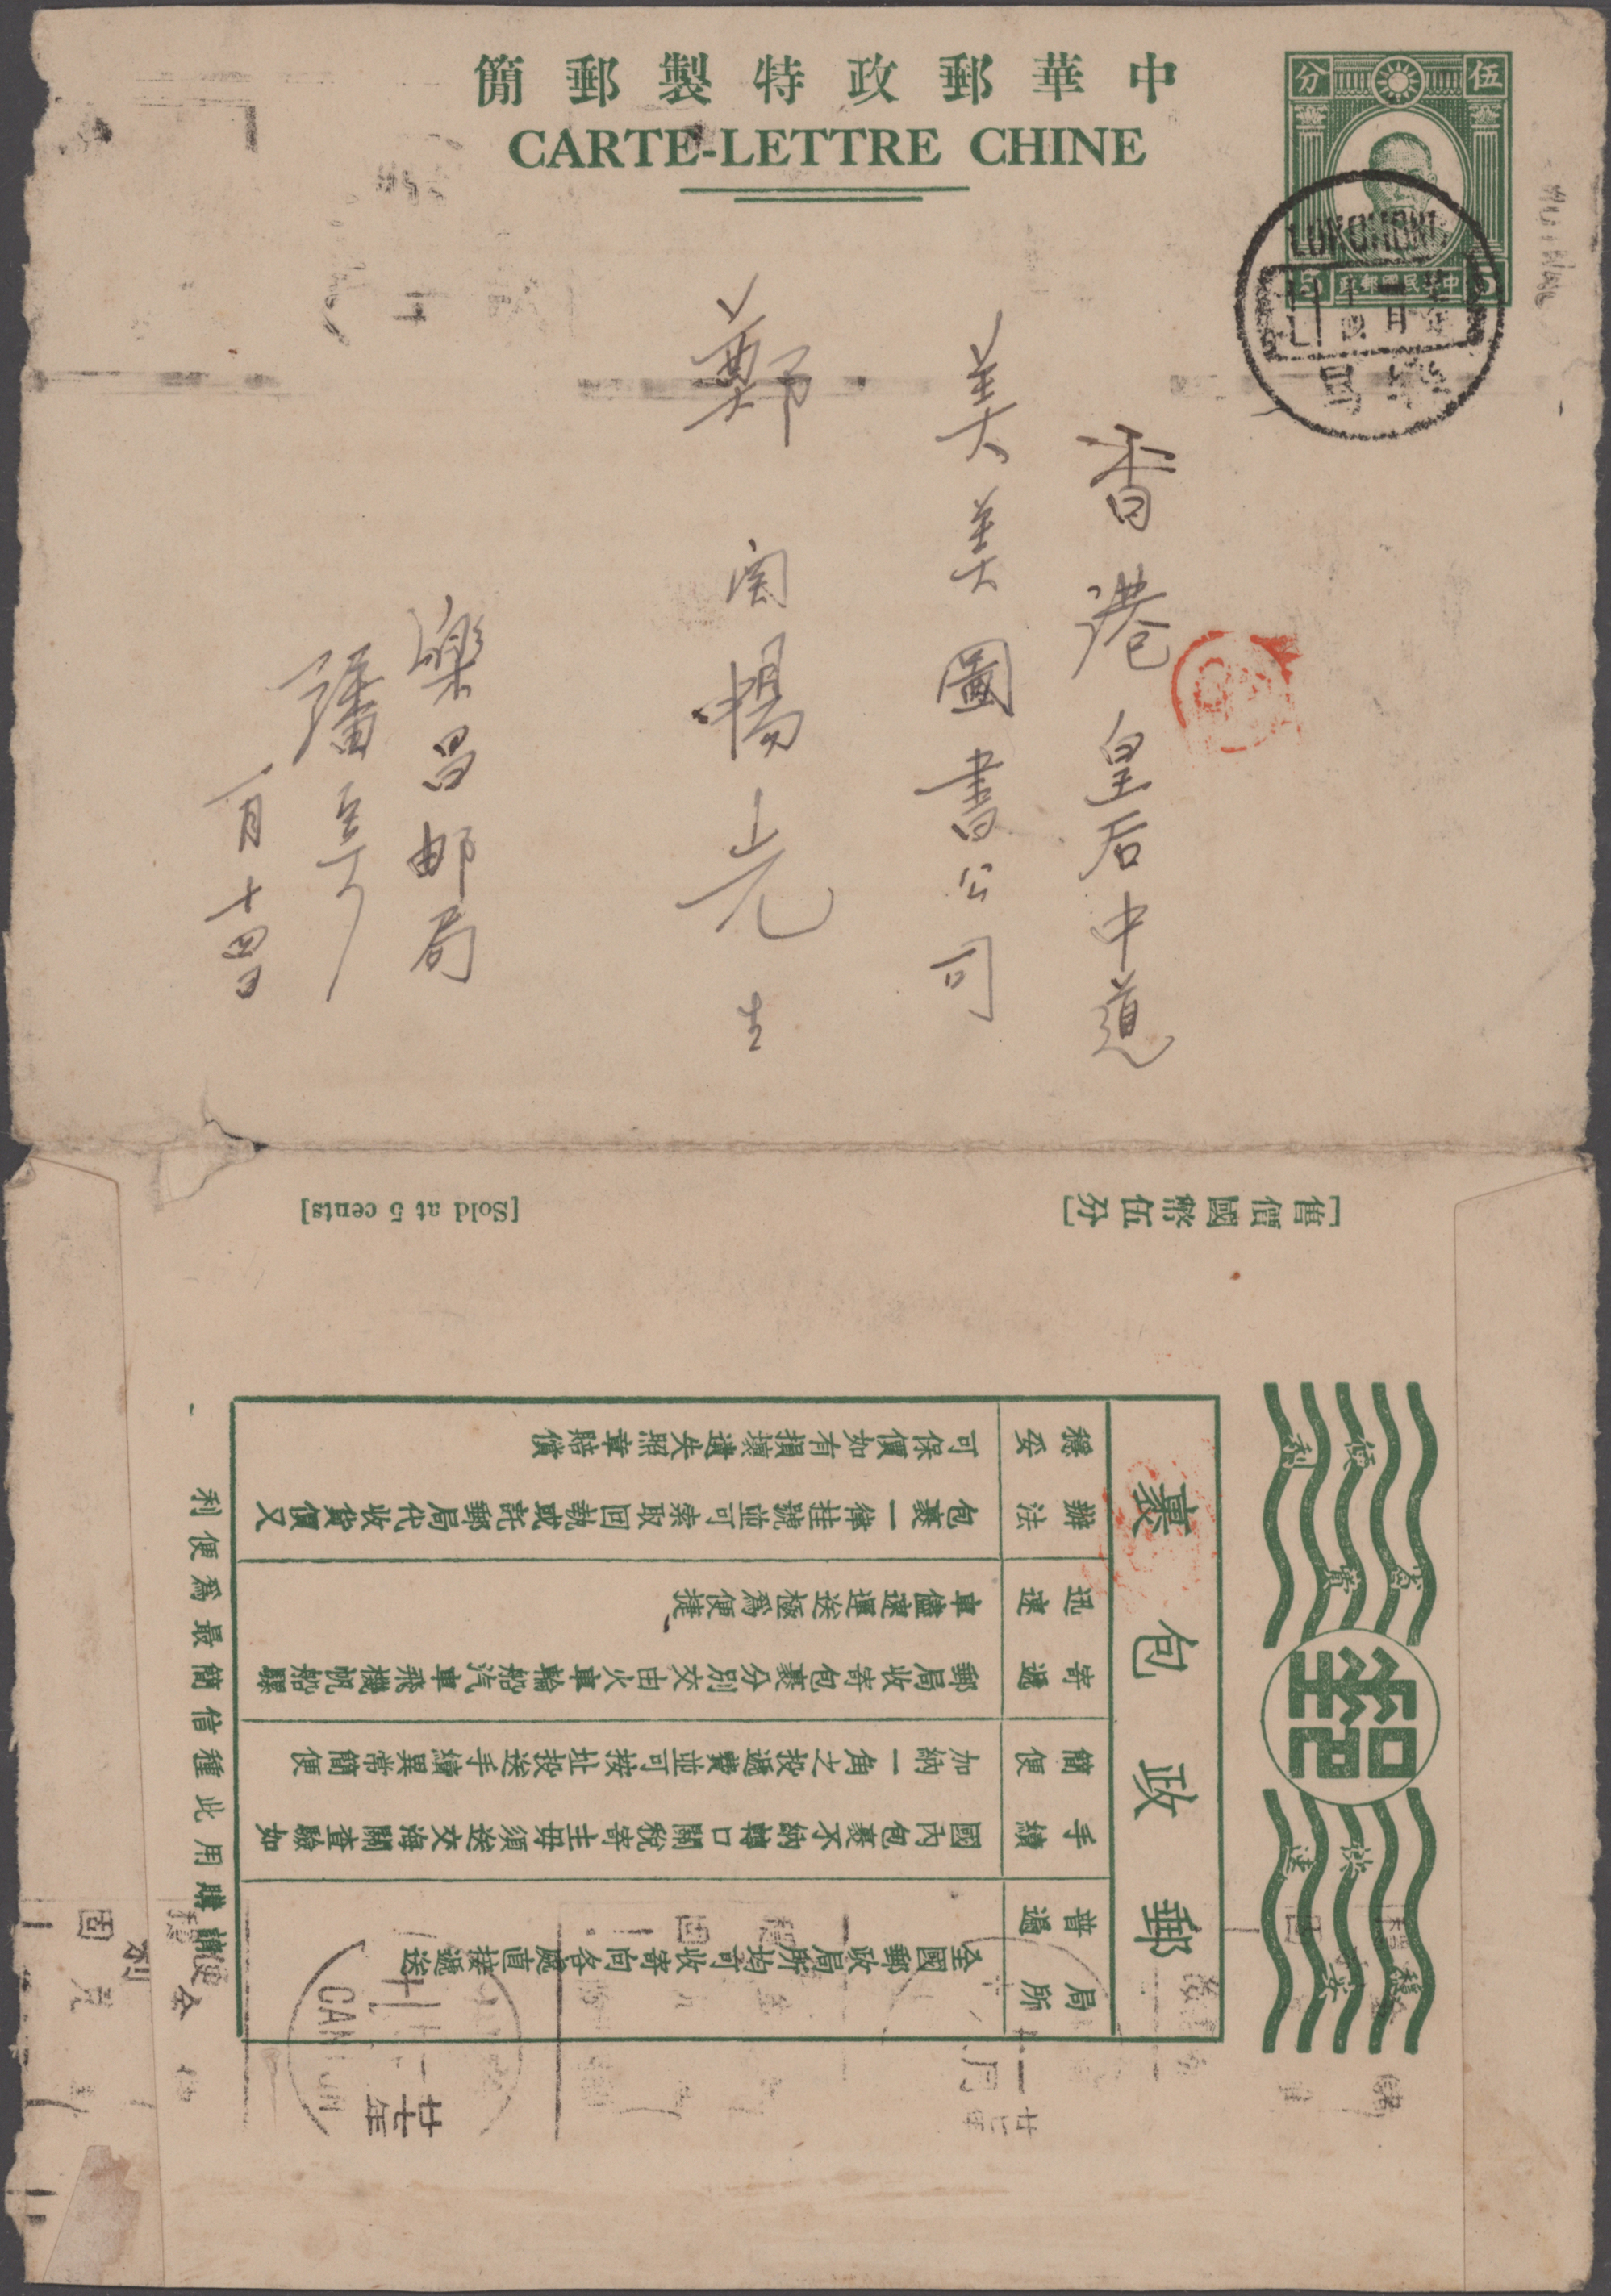 中華郵政特製郵簡
CARTE-LETTRE CHINE
伍分
5 中華民國郵政 5
LOKCHONG
樂昌
香港皇后中道
美美圖書公司
鄭
暢先生
樂昌郵局
潘
一月十四日
[售價國幣伍分]
[Sold at 5 cents]
便利
省費
快速
穩妥
郵政包裹
局所普遍
全國郵政局所均可收寄向各處直接遞送
手續簡便
國內包裹不納轉口關稅寄主毋須送交海關查驗如
加納一角之投遞費並可按址投送手續異常簡便
寄遞迅速
郵局收寄包裹分別交由火車輪船汽車飛機帆船騾
車儘速運送極爲便捷
辦法穩妥
包裹一律挂號並可索取回執或託郵局代收貨價又
可保價如有損壞遺失照章賠償
請購用此種信簡最爲便利
CANTON
廿七年